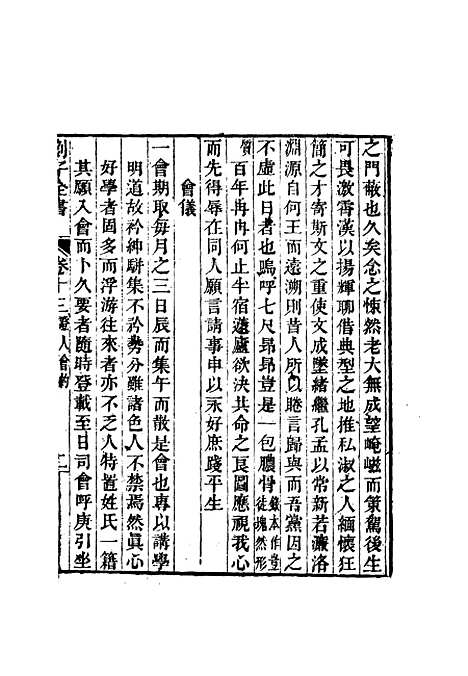 之門敝也久矣念之悚然老大無成望崦嵫而策駕後生
可畏激霄漢以揚輝聊借典型之地推私淑之人緬懷狂
簡之才寄斯文之重使文成墜緒繼孔孟以常新若濂洛
淵源自何王而遠溯則昔人所以睠言歸與而吾黨因之
不虛此日者也嗚呼七尺昻昻豈是一包膿骨錄本作豈徒塊然形
質百年冉冉何止半宿蘧廬欲決其命之良圖應視我心
而先得辱在同人願言請事申以永好庶踐平生
會儀
一會期取每月之三日辰而集午而散是會也專以講學
明道故衿紳騈集不矜勢分雖諸色人不禁焉然眞心
好學者固多而浮游往來者亦不乏人特置姓氏一籍
其願入會而卜久要者隨時登載至日司會呼庚引坐
劉子全書
卷十三 證人會約